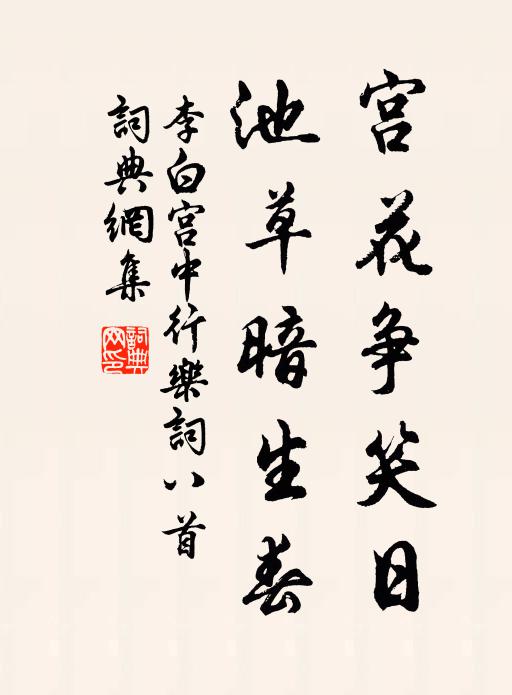 宫花争笑日
池草暗生春
李白宫中行樂詞八首
詞典網集
詞典網印